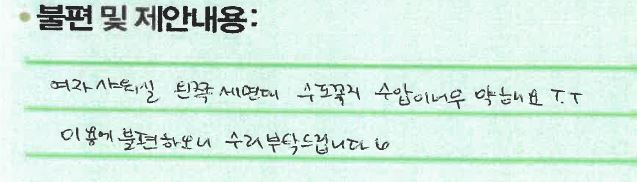 • 불편 및 제안내용:
여자 샤워실 왼쪽 세면대 수도꼭지 수압이너무 약해요 T.T
이용에 불편하오니 수리부탁드립니다